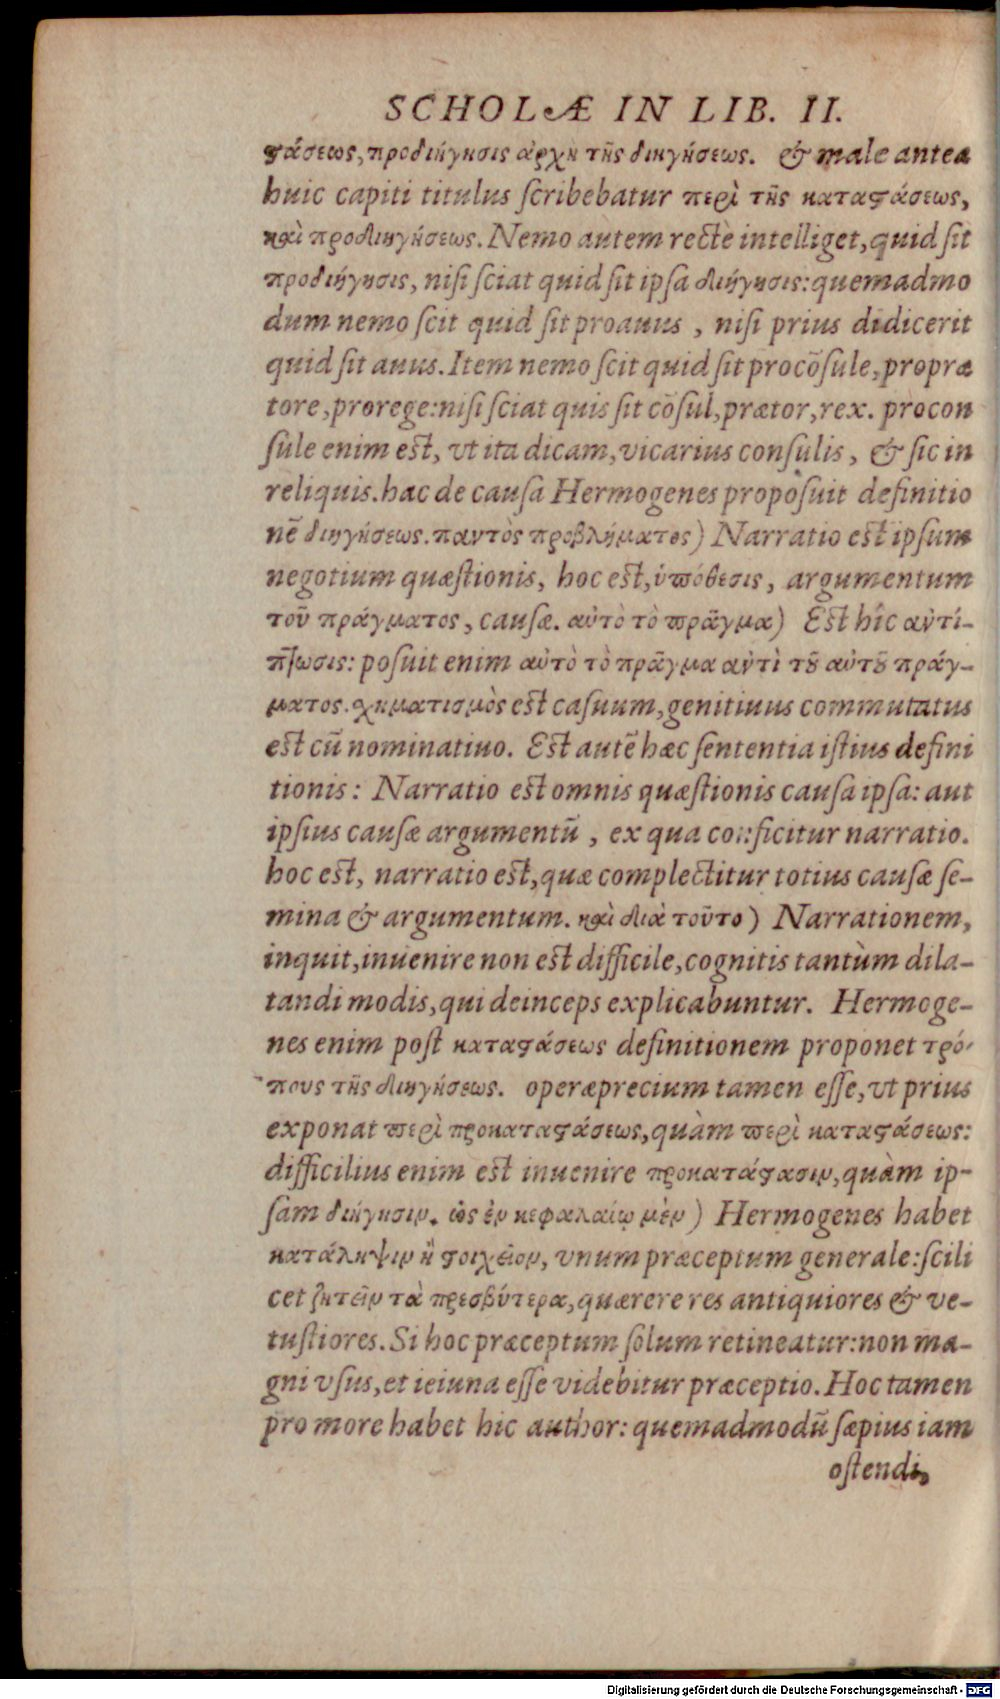 SCHOLÆ IN LIB. II.
ϛάσεως, προδιήγησις ἀρχὴ τῆς διηγήσεως. & male antea
huic capiti titulus ſcribebatur περὶ τῆς καταϛάσεως,
καὶ προδιηγήσεως. Nemo autem rectè intelliget, quid ſit
προδιήγησις, niſi ſciat quid ſit ipſa διήγησις: quemadmo
dum nemo ſcit quid ſit proauus , niſi prius didicerit
quid ſit auus. Item nemo ſcit quid ſit procõſule, propræ
tore, prorege: niſi ſciat quis ſit cõſul, prætor, rex. procon
ſule enim est, vt ita dicam, vicarius conſulis , & ſic in
reliquis. hac de cauſa Hermogenes propoſuit definitio
nẽ διηγήσεως. παντὸς προβλήματος) Narratio est ipſum
negotium quæſtionis, hoc est, ὑπόθεσις, argumentum
τοῦ πράγματος, cauſæ. αὐτὸ τὸ πρᾶγμα) Est hîc ἀντί-
πτωσις: poſuit enim αὐτὸ τὸ πρᾶγμα ἀντὶ τȣ͂ αὐτȣ͂ πράγ-
ματος. χηματισμὸς est caſuum, genitiuus commutatus
est cũ nominatiuo. Est autẽ hæc ſententia iſtius defini
tionis: Narratio est omnis quæſtionis cauſa ipſa: aut
ipſius cauſæ argumentũ , ex qua conficitur narratio.
hoc est, narratio est, quæ complectitur totius cauſæ ſe-
mina & argumentum. καὶ διὰ τοῦτο) Narrationem,
inquit, inuenire non est difficile, cognitis tantùm dila-
tandi modis, qui deinceps explicabuntur. Hermoge-
nes enim poſt καταϛάσεως definitionem proponet τρό-
πους τῆς διηγήσεως. operæprecium tamen eſſe, vt prius
exponat περὶ προκαταϛάσεως, quàm περὶ καταϛάσεως:
difficilius enim est inuenire προκατάϛασιν, quàm ip-
ſam διήγησιν. ὡς ἐν κεφαλαίῳ μὲν) Hermogenes habet
κατάληψιν ἢ ϛοιχεῖον, vnum præceptum generale: ſcili
cet ζητεῖν τὰ πρεσβύτερα, quærere res antiquiores & ve-
tuſtiores. Si hoc præceptum ſolum retineatur: non ma-
gni vſus, et ieiuna eſſe videbitur præceptio. Hoc tamen
pro more habet hic author: quemadmodũ ſæpius iam
oſtendi,
Digitalisierung gefördert durch die Deutsche Forschungsgemeinschaft - DFG